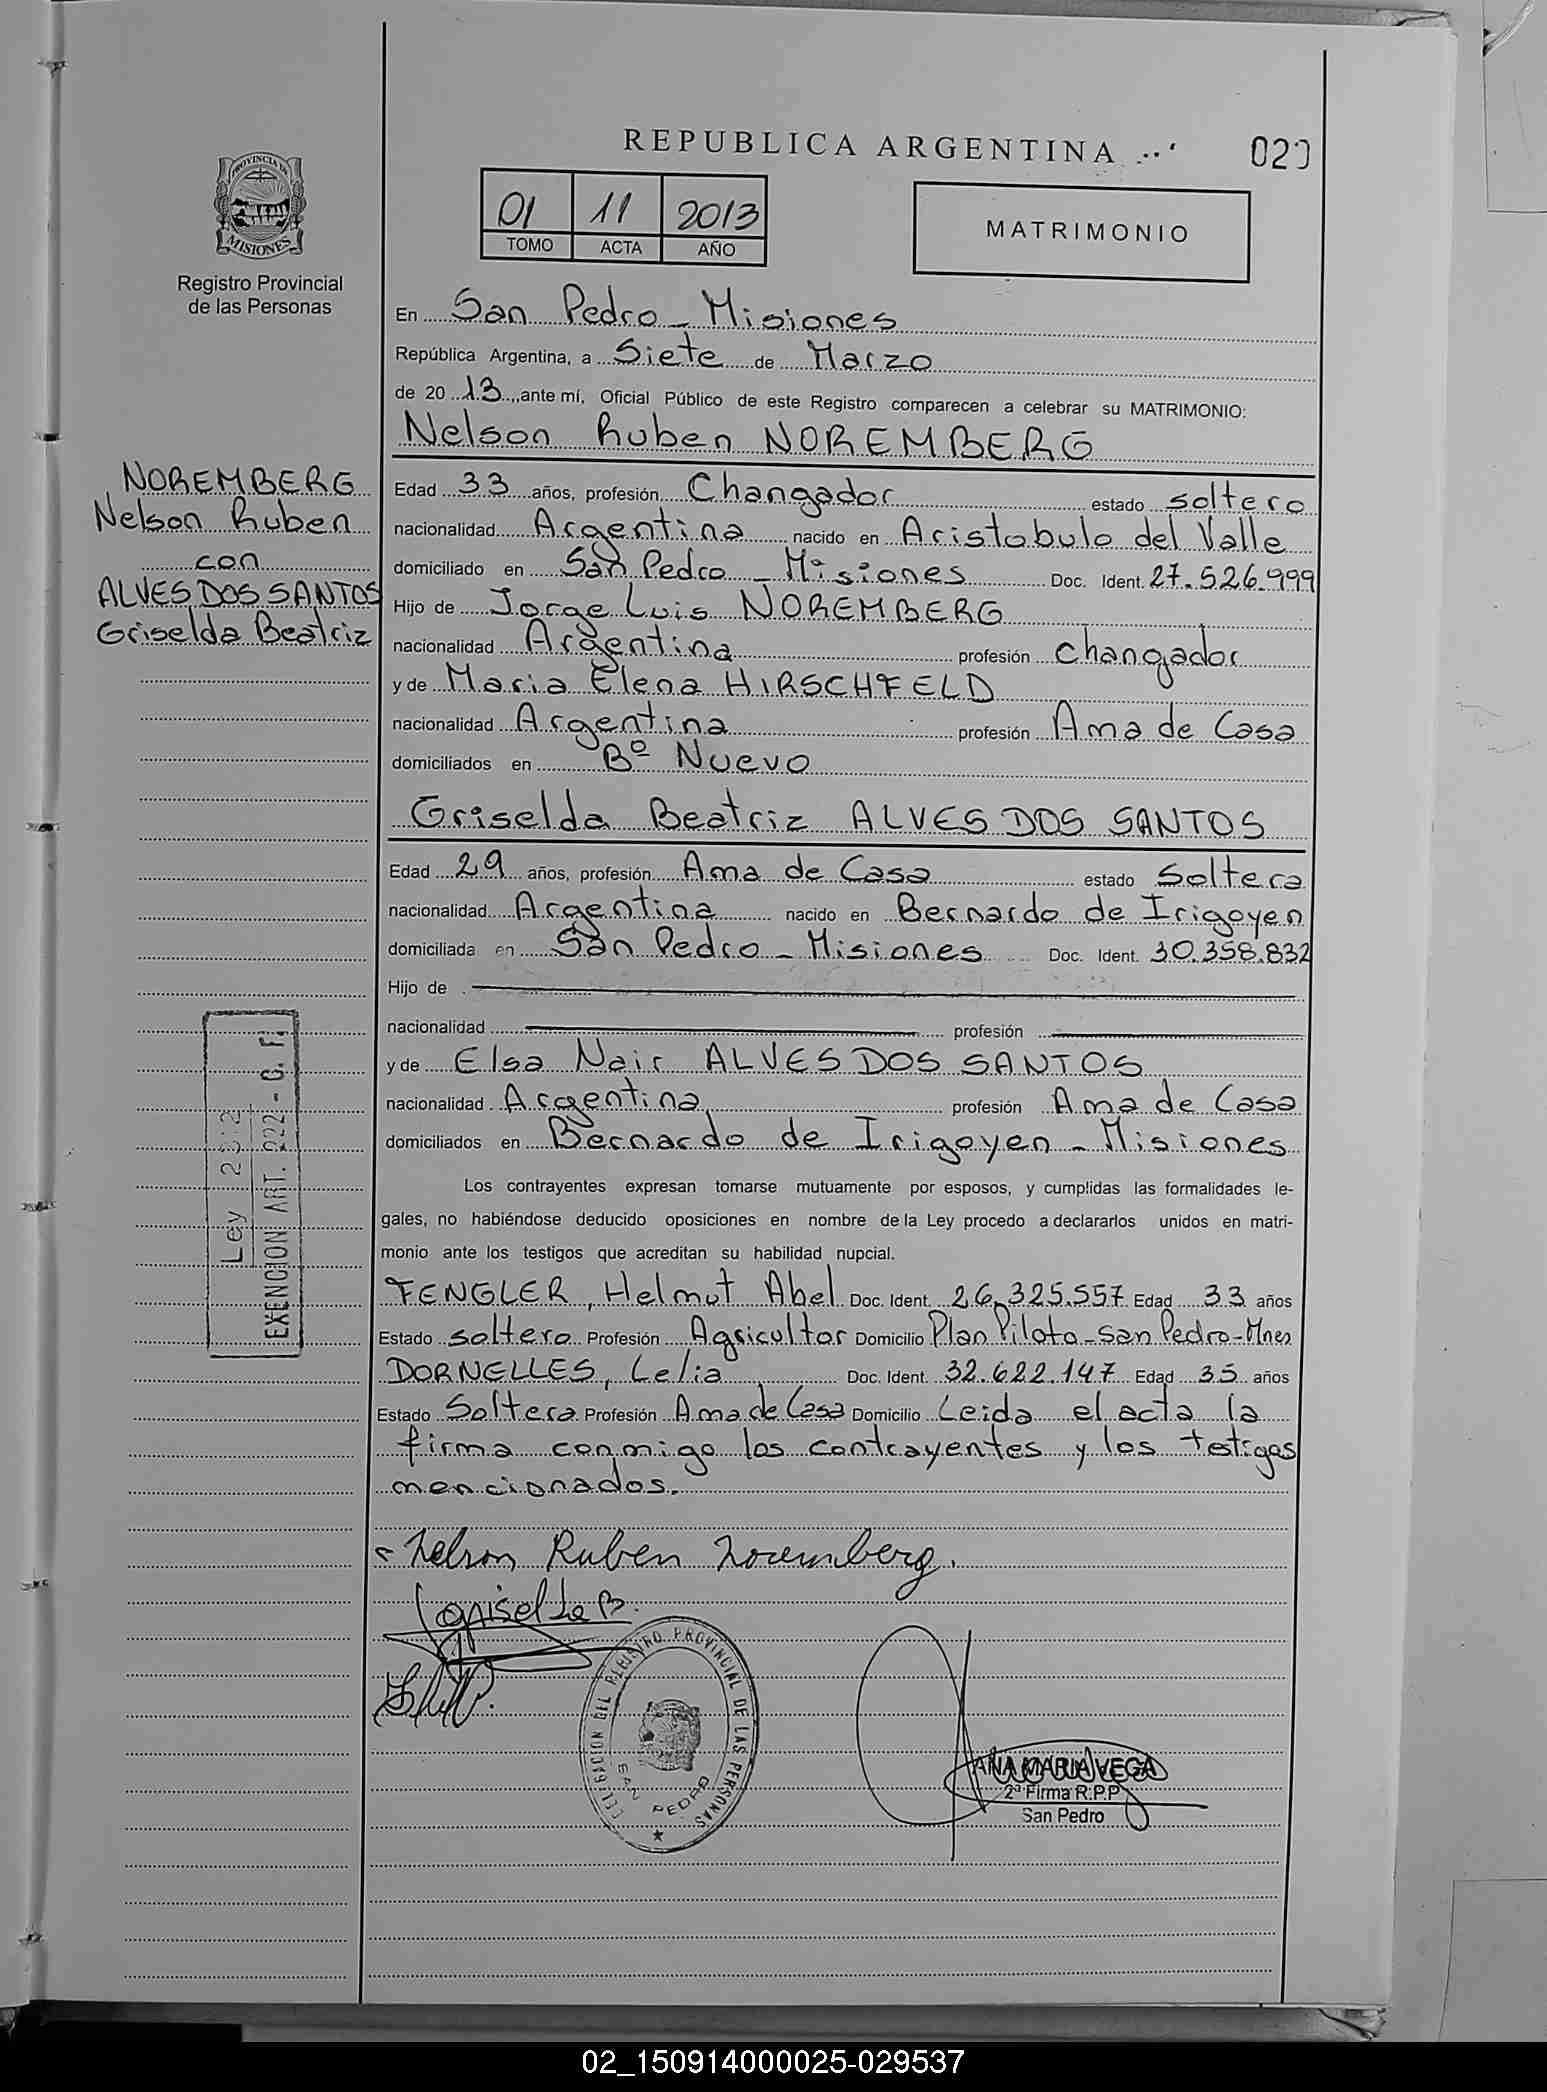 REPUBLICA ARGENTINA
PROVINCIA DE
MISIONES
Registro Provincial
de las Personas
01 11 2013
TOMO ACTA AÑO
MATRIMONIO
En San Pedro - Misiones
República Argentina, a Siete de Marzo
de 20 13, ante mí, Oficial Público de este Registro comparecen a celebrar su MATRIMONIO:
Nelson Ruben NOREMBERG
NOREMBERG
Nelson Ruben
con
ALVES DOS SANTOS
Griselda Beatriz
Edad 33 años, profesión Changador estado soltero
nacionalidad Argentina nacido en Aristobulo del Valle
domiciliado en San Pedro - Misiones Doc. Ident. 27.526.999
Hijo de Jorge Luis NOREMBERG
nacionalidad Argentina profesión changador
y de Maria Elena HIRSCHFELD
nacionalidad Argentina profesión Ama de Casa
domiciliados en Bº Nuevo
Griselda Beatriz ALVES DOS SANTOS
Edad 29 años, profesión Ama de Casa estado Soltera
nacionalidad Argentina nacido en Bernardo de Irigoyen
domiciliada en San Pedro - Misiones Doc. Ident. 30.358.832
Hijo de
nacionalidad profesión
y de Elsa Nair ALVES DOS SANTOS
nacionalidad Argentina profesión Ama de Casa
domiciliados en Bernardo de Irigoyen - Misiones
Ley
EXENCION ART. 222 - C. F.
Los contrayentes expresan tomarse mutuamente por esposos, y cumplidas las formalidades le-
gales, no habiéndose deducido oposiciones en nombre de la Ley procedo a declararlos unidos en matri-
monio ante los testigos que acreditan su habilidad nupcial.
FENGLER, Helmut Abel Doc. Ident. 26.325.557 Edad 33 años
Estado soltero Profesión Agricultor Domicilio Plan Piloto - San Pedro - Mnes
DORNELLES, Lelia Doc. Ident. 32.622.147 Edad 35 años
Estado Soltera Profesión Ama de Casa Domicilio Leida el acta la
firma conmigo los contrayentes y los testigos
mencionados.
Nelson Ruben Noremberg.
Griselda B.
DELEGACION DEL REGISTRO PROVINCIAL DE LAS PERSONAS
SAN PEDRO
ANA MARIA VEGA
2ª Firma R.P.P
San Pedro
02_150914000025-029537